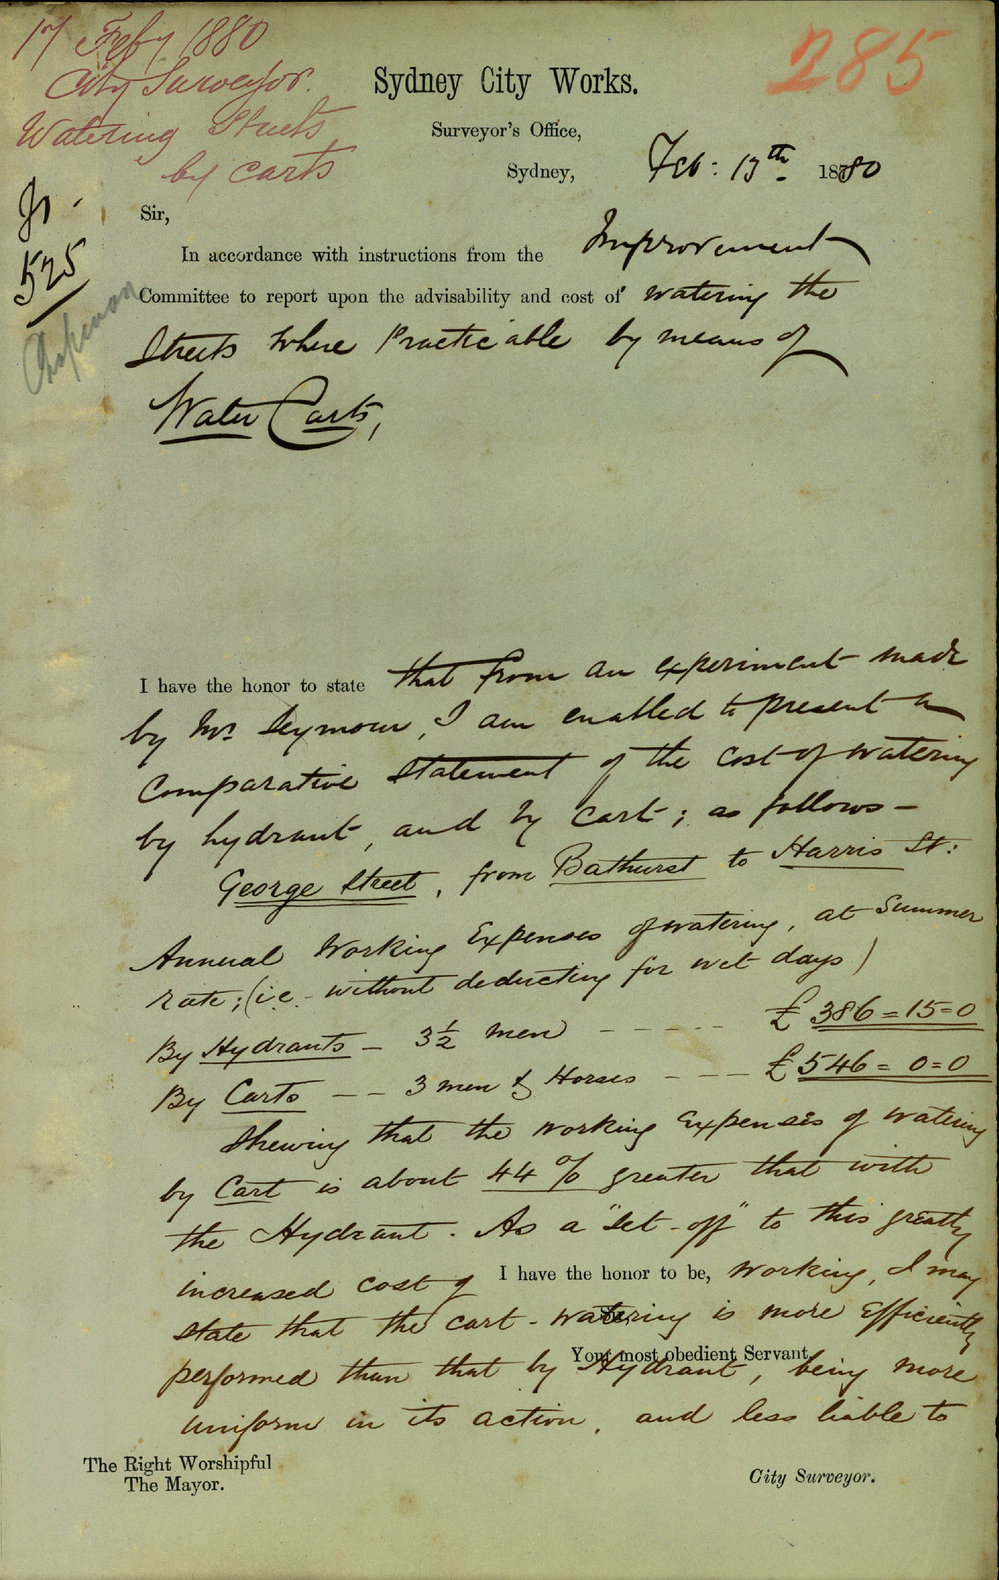 17 Feby 1880
City Surveyor.
Watering Streets
by carts
285
Sydney City Works.
Surveyor's Office,
Sydney, Feb: 17th 1880
525
Sir,
In accordance with instructions from the Improvement
Committee to report upon the advisability and cost of watering the
Streets where Practicable by means of
Water Carts,
I have the honor to state that from an experiment made
by Mr. Seymour, I am enabled to present a
Comparative Statement of the cost of watering
by hydrant, and by Cart; as follows –
George Street, from Bathurst to Harris St:
Annual Working Expenses of watering, at Summer
rate; (i.e. – without deducting for wet days)
By Hydrants – 3½ men – – – – – £ 386=15=0
By Carts – – 3 men & Horses – – – – £ 546=0=0
Shewing that the working Expenses of watering
by Cart is about 44% greater that with
the Hydrant. As a "set-off" to this greatly
increased cost of I have the honor to be, working, I may
state that the cart-watering is more Efficiently
Your most obedient Servant,
performed than that by Hydrant, being more
uniform in its action, and less liable to
The Right Worshipful
The Mayor.
City Surveyor.